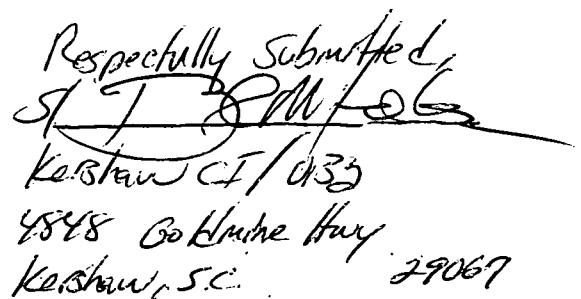 Respectfully Submitted,
S/
Kershaw CI/
4848 Goldmine Hwy
Kershaw, S.C. 29067